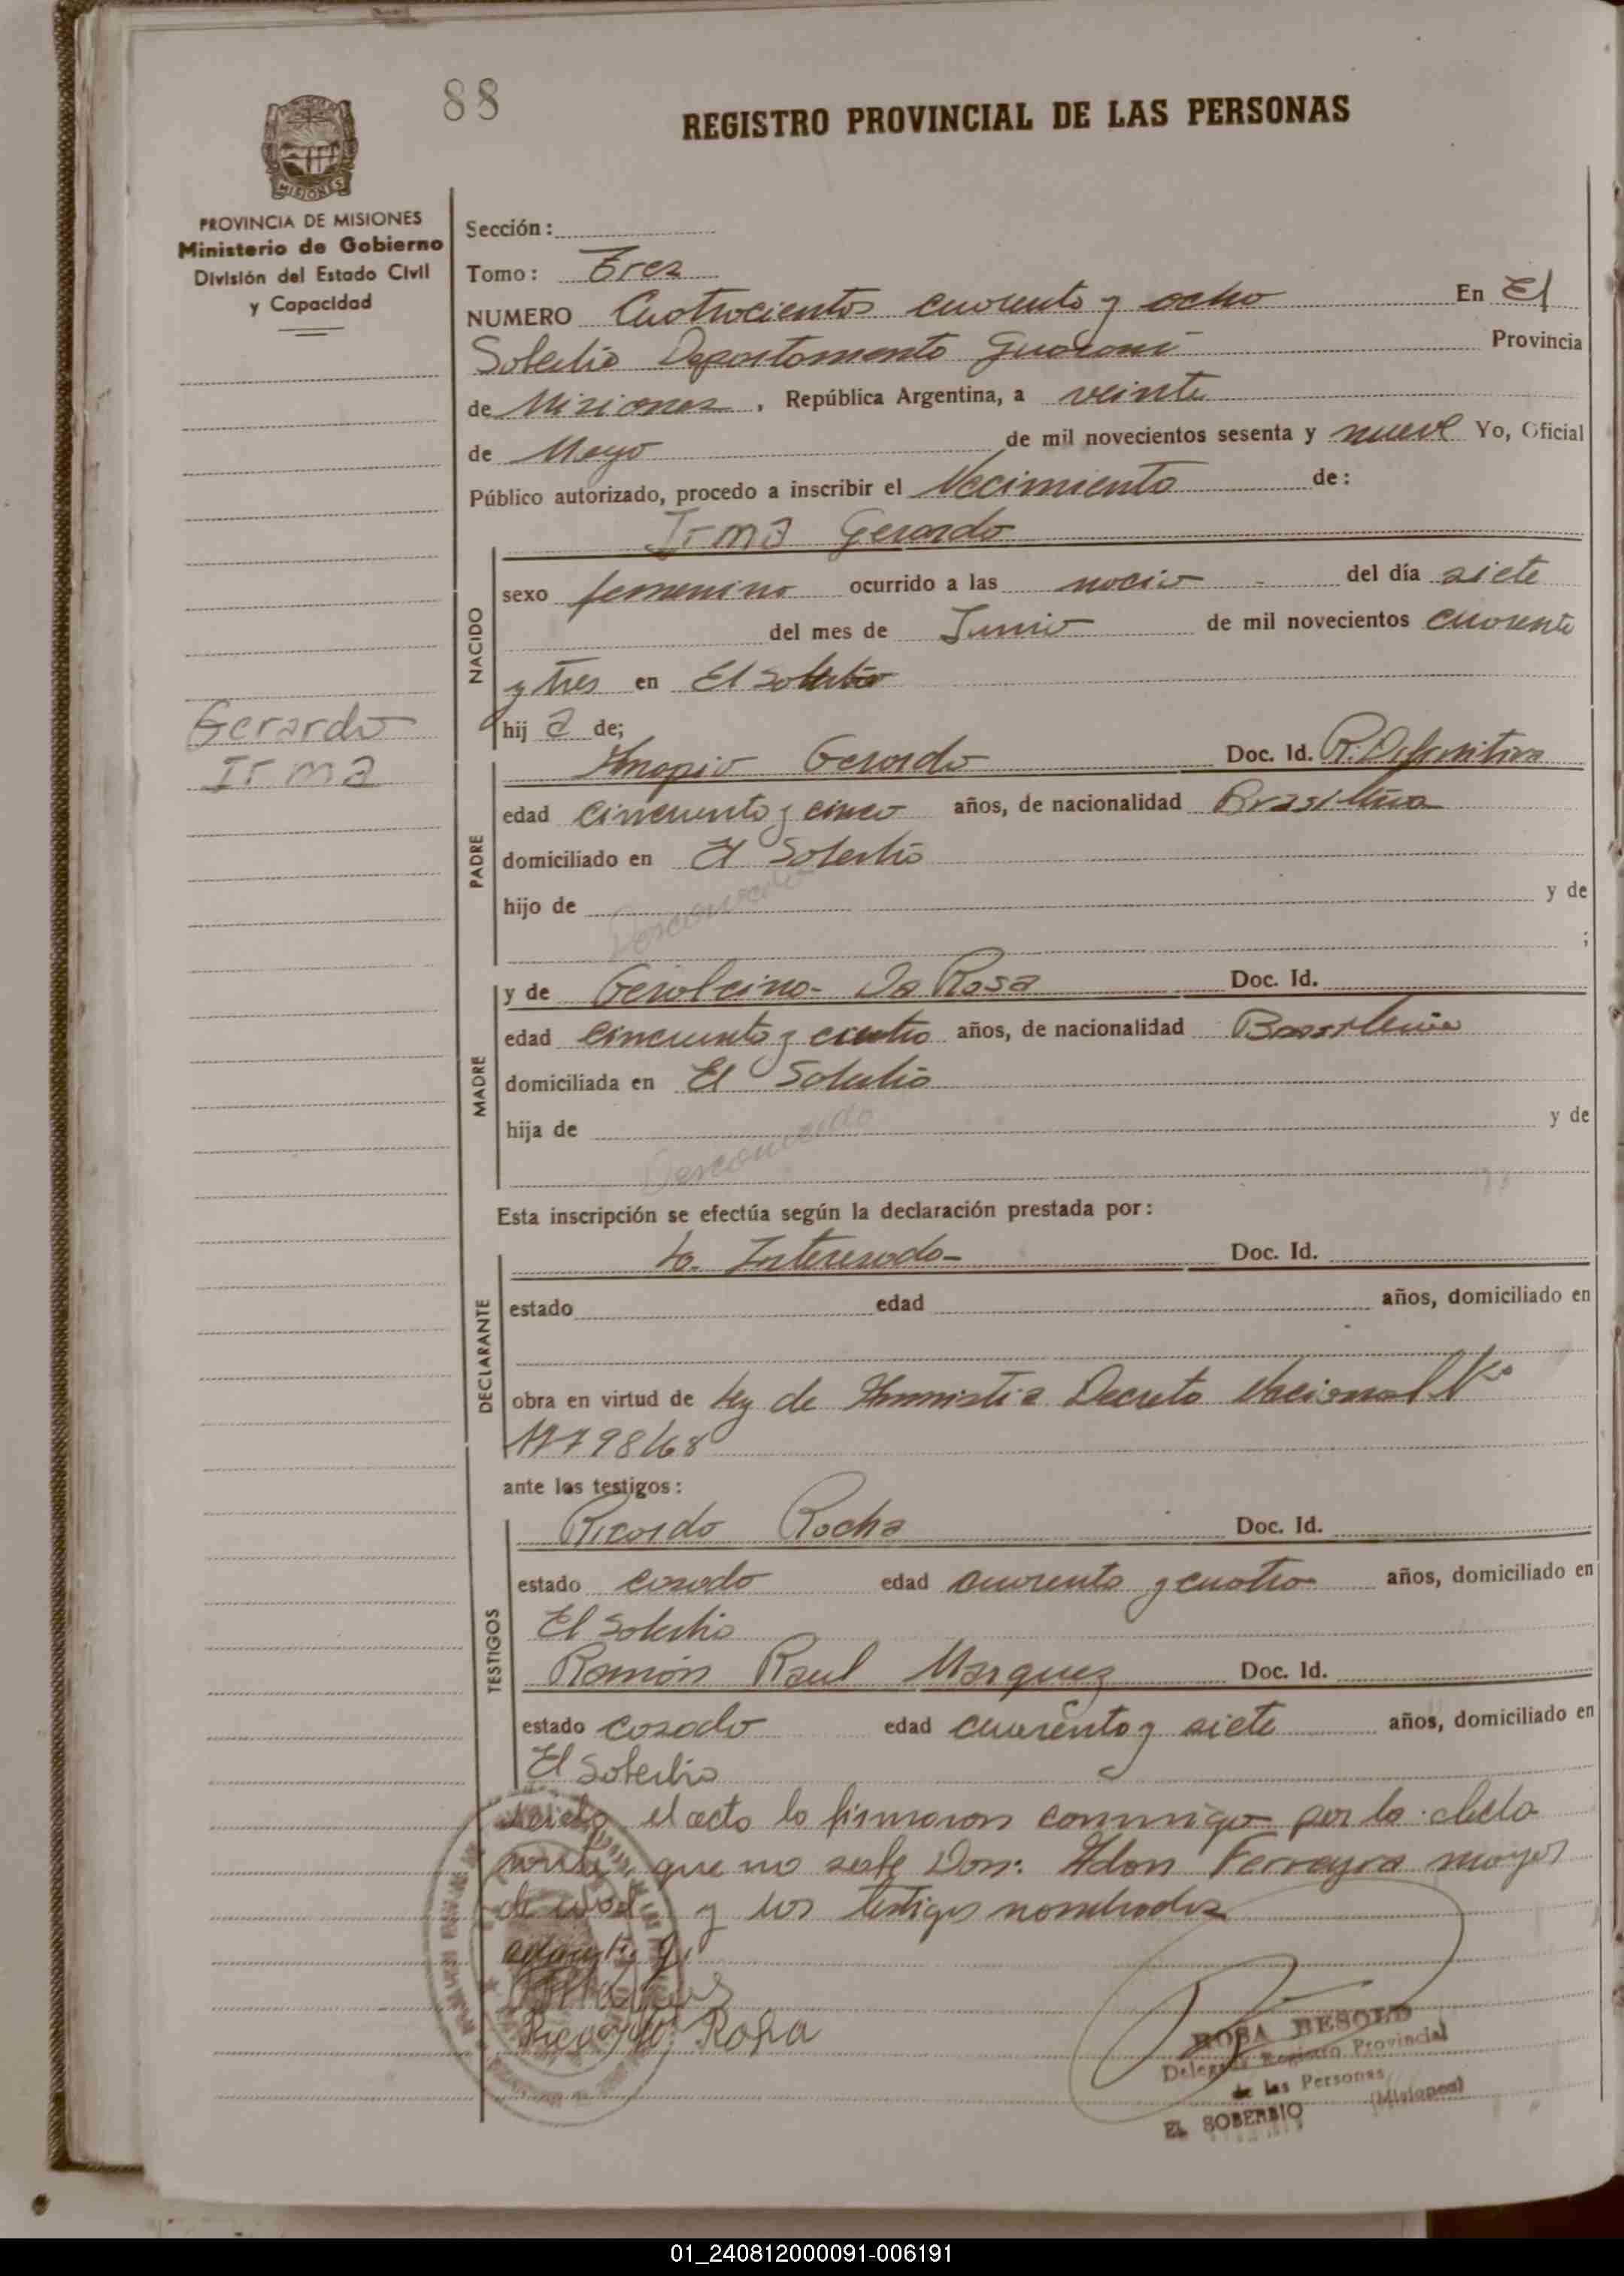 88
REGISTRO PROVINCIAL DE LAS PERSONAS
MISIONES
PROVINCIA DE MISIONES
Ministerio de Gobierno
División del Estado Civil
y Capacidad
Sección:
Tomo: Tres
NUMERO Cuatrocientos cuarenta y ocho En El
Soberbio Departamento Guaraní Provincia
de Misiones, República Argentina, a veinte
de Mayo de mil novecientos sesenta y nueve Yo, Oficial
Público autorizado, procedo a inscribir el Nacimiento de:
Irma Gerardo
NACIDO
sexo femenino ocurrido a las del día siete
del mes de Junio de mil novecientos cuarenta
y tres en El Soberbio
hij a de;
Gerardo
Irma
PADRE
Gerardo Doc. Id. R. Definitiva
edad cincuenta y cinco años, de nacionalidad Brasileña
domiciliado en El Soberbio
hijo de Desconocido y de
;
MADRE
y de Da Rosa Doc. Id.
edad cincuenta y cuatro años, de nacionalidad Brasileña
domiciliada en El Soberbio
hija de Desconocido y de
Esta inscripción se efectúa según la declaración prestada por:
DECLARANTE
La Interesada Doc. Id.
estado edad años, domiciliado en
obra en virtud de Ley de Amnistia Decreto Nacional Nº
17798/68
ante los testigos:
TESTIGOS
Ricardo Rocha Doc. Id.
estado casado edad cuarenta y cuatro años, domiciliado en
El Soberbio
Ramón Raul Marquez Doc. Id.
estado casado edad cuarenta y siete años, domiciliado en
El Soberbio
el acto lo firmaron conmigo por la decla
rante que no sabe Don: Adon Ferreyra mayor
de edad y los testigos nombrados
ROSA BESOLD
Delegada Registro Provincial
de las Personas
EL SOBERBIO (Misiones)
01_240812000091-006191